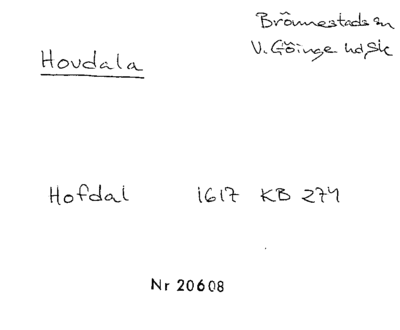 Brönnestads sn
V. Göinge hd, Sk
Hovdala
Hofdal 1617 KB 274
Nr 20608